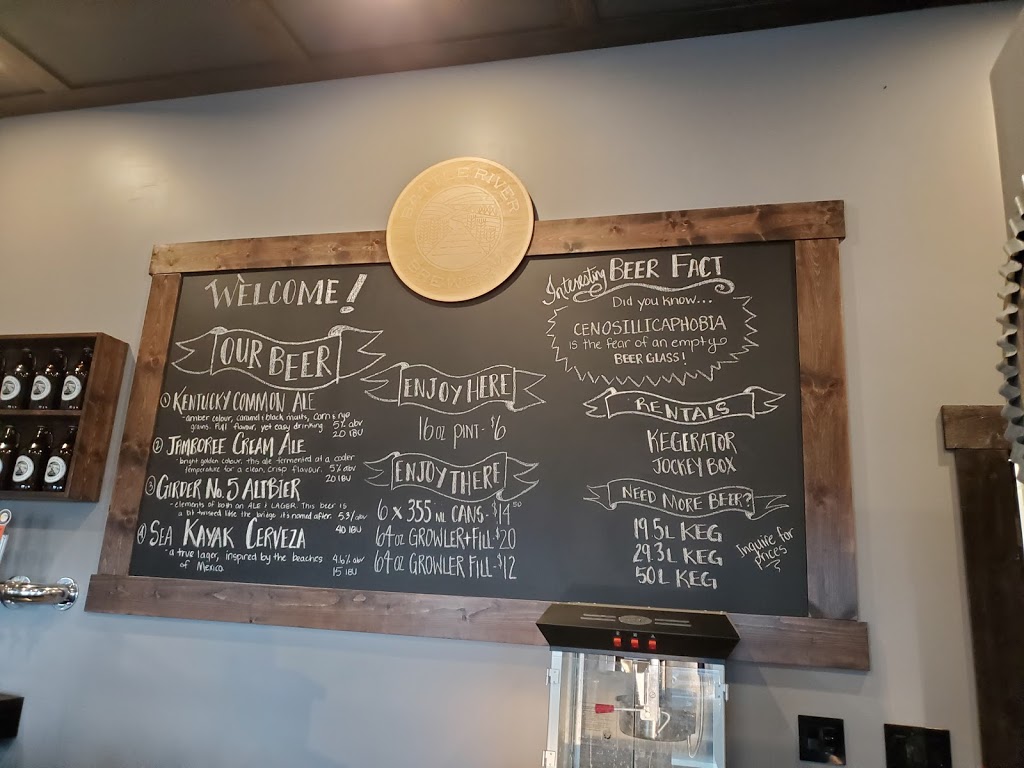 BATTLE RIVER
WELCOME!
OUR BEER
① KENTUCKY COMMON ALE
- amber colour, caramel & black malts, corn & rye
grains. Full flavour, yet easy drinking. 5% abv
20 IBU
② JAMBOREE CREAM ALE
- bright golden colour, this ale fermented at a cooler
temperature for a clean, crisp flavour. 5% abv
20 IBU
③ GIRDER No. 5 ALTBIER
- elements of both an ALE & LAGER. This beer is
a bit twisted like the bridge it's named after. 5.3% abv
40 IBU
④ SEA KAYAK CERVEZA
- a true lager, inspired by the beaches 4.6% abv
of Mexico. 15 IBU
ENJOY HERE
16 oz PINT - $6
ENJOY THERE
6 x 355 ml CANS - $14.50
64 oz GROWLER + FILL - $20
64 oz GROWLER FILL - $12
Interesting BEER FACT
Did you know...
CENOSILLICAPHOBIA
is the fear of an empty
BEER GLASS!
RENTALS
KEGERATOR
JOCKEY BOX
NEED MORE BEER?
19.5L KEG
29.3L KEG
50L KEG
Inquire for
prices